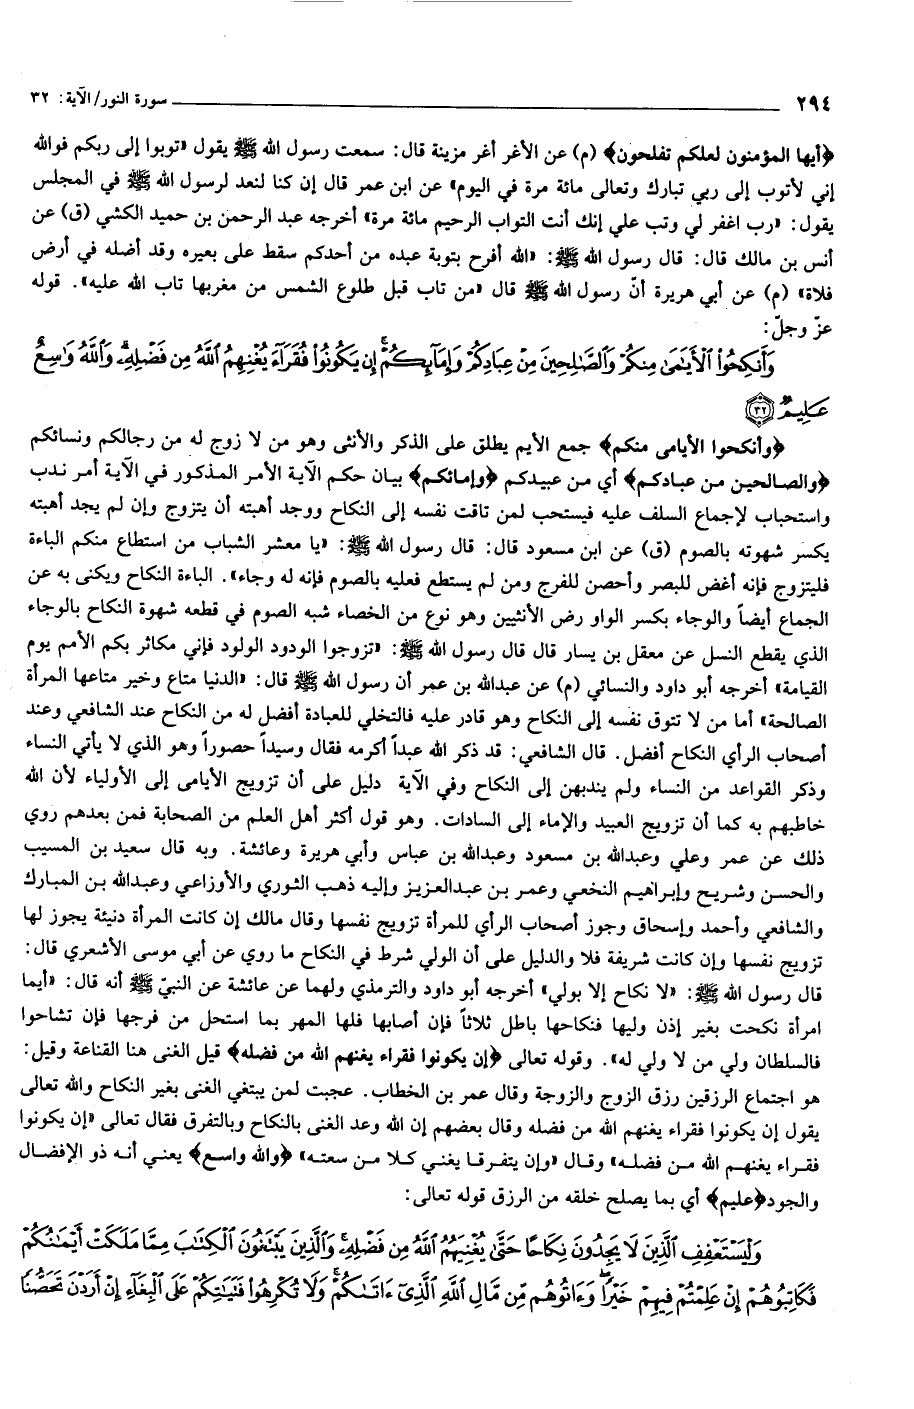 ٢٩٤ سورة النور/الآية: ٣٢
﴿أيها المؤمنون لعلكم تفلحون﴾ (م) عن الأغر أغر مزينة قال: سمعت رسول الله ﷺ يقول «توبوا إلى ربكم فوالله
إني لأتوب إلى ربي تبارك وتعالى مائة مرة في اليوم» عن ابن عمر قال إن كنا لنعد لرسول الله ﷺ في المجلس
يقول: «رب اغفر لي وتب علي إنك أنت التواب الرحيم مائة مرة» أخرجه عبد الرحمن بن حميد الكشي (ق) عن
أنس بن مالك قال: قال رسول الله ﷺ: «الله أفرح بتوبة عبده من أحدكم سقط على بعيره وقد أضله في أرض
فلاة» (م) عن أبي هريرة أنّ رسول الله ﷺ قال «من تاب قبل طلوع الشمس من مغربها تاب الله عليه». قوله
عزّ وجلّ:
وَأَنكِحُوا۟ ٱلْأَيَـٰمَىٰ مِنكُمْ وَٱلصَّـٰلِحِينَ مِنْ عِبَادِكُمْ وَإِمَآئِكُمْ ۚ إِن يَكُونُوا۟ فُقَرَآءَ يُغْنِهِمُ ٱللَّهُ مِن فَضْلِهِۦ ۗ وَٱللَّهُ وَٰسِعٌ
عَلِيمٌ ﴿٣٢﴾
﴿وأنكحوا الأيامى منكم﴾ جمع الأيم يطلق على الذكر والأنثى وهو من لا زوج له من رجالكم ونسائكم
﴿والصالحين من عبادكم﴾ أي من عبيدكم ﴿وإمائكم﴾ بيان حكم الآية الأمر المذكور في الآية أمر ندب
واستحباب لإجماع السلف عليه فيستحب لمن تاقت نفسه إلى النكاح ووجد أهبته أن يتزوج وإن لم يجد أهبته
يكسر شهوته بالصوم (ق) عن ابن مسعود قال: قال رسول الله ﷺ: «يا معشر الشباب من استطاع منكم الباءة
فليتزوج فإنه أغض للبصر وأحصن للفرج ومن لم يستطع فعليه بالصوم فإنه له وجاء». الباءة النكاح ويكنى به عن
الجماع أيضاً والوجاء بكسر الواو رض الأنثيين وهو نوع من الخصاء شبه الصوم في قطعه شهوة النكاح بالوجاء
الذي يقطع النسل عن معقل بن يسار قال قال رسول الله ﷺ: «تزوجوا الودود الولود فإني مكاثر بكم الأمم يوم
القيامة» أخرجه أبو داود والنسائي (م) عن عبدالله بن عمر أن رسول الله ﷺ قال: «الدنيا متاع وخير متاعها المرأة
الصالحة» أما من لا تتوق نفسه إلى النكاح وهو قادر عليه فالتخلي للعبادة أفضل له من النكاح عند الشافعي وعند
أصحاب الرأي النكاح أفضل. قال الشافعي: قد ذكر الله عبداً أكرمه فقال وسيداً حصوراً وهو الذي لا يأتي النساء
وذكر القواعد من النساء ولم يندبهن إلى النكاح وفي الآية دليل على أن تزويج الأيامى إلى الأولياء لأن الله
خاطبهم به كما أن تزويج العبيد والإماء إلى السادات. وهو قول أكثر أهل العلم من الصحابة فمن بعدهم روي
ذلك عن عمر وعلي وعبدالله بن مسعود وعبدالله بن عباس وأبي هريرة وعائشة. وبه قال سعيد بن المسيب
والحسن وشريح وإبراهيم النخعي وعمر بن عبدالعزيز وإليه ذهب الثوري والأوزاعي وعبدالله بن المبارك
والشافعي وأحمد وإسحاق وجوز أصحاب الرأي للمرأة تزويج نفسها وقال مالك إن كانت المرأة دنيئة يجوز لها
تزويج نفسها وإن كانت شريفة فلا والدليل على أن الولي شرط في النكاح ما روي عن أبي موسى الأشعري قال:
قال رسول الله ﷺ: «لا نكاح إلا بولي» أخرجه أبو داود والترمذي ولهما عن عائشة عن النبيّ ﷺ أنه قال: «أيما
امرأة نكحت بغير إذن وليها فنكاحها باطل ثلاثاً فإن أصابها فلها المهر بما استحل من فرجها فإن تشاحوا
فالسلطان ولي من لا ولي له». وقوله تعالى ﴿إن يكونوا فقراء يغنهم الله من فضله﴾ قيل الغنى هنا القناعة وقيل:
هو اجتماع الرزقين رزق الزوج والزوجة وقال عمر بن الخطاب. عجبت لمن يبتغي الغنى بغير النكاح والله تعالى
يقول إن يكونوا فقراء يغنهم الله من فضله وقال بعضهم إن الله وعد الغنى بالنكاح وبالتفرق فقال تعالى «إن يكونوا
فقراء يغنهم الله من فضله» وقال «وإن يتفرقا يغني كلا من سعته» ﴿والله واسع﴾ يعني أنه ذو الإفضال
والجود﴿عليم﴾ أي بما يصلح خلقه من الرزق قوله تعالى:
وَلْيَسْتَعْفِفِ ٱلَّذِينَ لَا يَجِدُونَ نِكَاحًا حَتَّىٰ يُغْنِيَهُمُ ٱللَّهُ مِن فَضْلِهِۦ ۗ وَٱلَّذِينَ يَبْتَغُونَ ٱلْكِتَـٰبَ مِمَّا مَلَكَتْ أَيْمَـٰنُكُمْ
فَكَاتِبُوهُمْ إِنْ عَلِمْتُمْ فِيهِمْ خَيْرًا ۖ وَءَاتُوهُم مِّن مَّالِ ٱللَّهِ ٱلَّذِىٓ ءَاتَىٰكُمْ ۚ وَلَا تُكْرِهُوا۟ فَتَيَـٰتِكُمْ عَلَى ٱلْبِغَآءِ إِنْ أَرَدْنَ تَحَصُّنًا